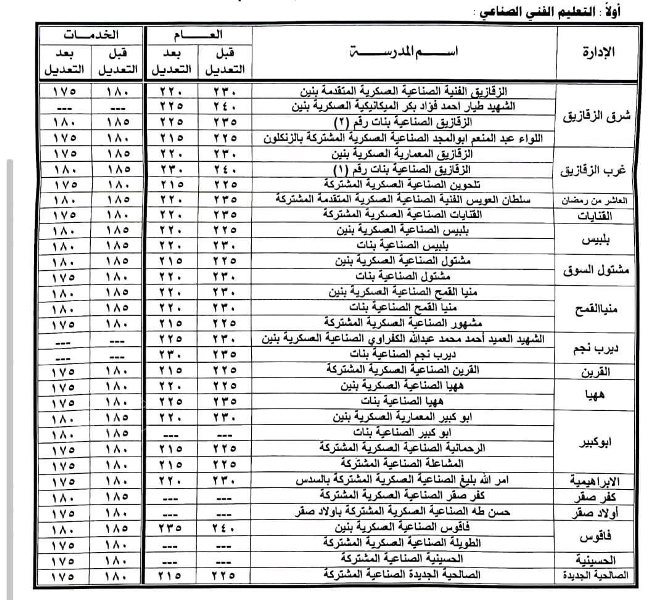 أولاً : التعليم الفني الصناعي :
الإدارة اسم المدرسة العام الخدمات
قبل التعديل بعد التعديل قبل التعديل بعد التعديل
شرق الزقازيق الزقازيق الفنية الصناعية العسكرية المتقدمة بنين ٢٣٠ ٢٢٠ ١٨٠ ١٧٥
الشهيد طيار احمد فؤاد بكر الميكانيكية العسكرية بنين ٢٤٠ ٢٢٥ --- ---
الزقازيق الصناعية بنات رقم (٢) ٢٣٥ ٢٢٥ ١٨٥ ١٨٠
اللواء عبد المنعم ابوالمجد الصناعية العسكرية المشتركة بالزنكلون ٢٢٥ ٢١٥ ١٨٠ ١٧٥
غرب الزقازيق الزقازيق المعمارية العسكرية بنين ٢٣٠ ٢٢٠ ١٨٥ ١٧٥
الزقازيق الصناعية بنات رقم (١) ٢٤٠ ٢٣٠ ١٨٥ ١٨٠
تلحوين الصناعية العسكرية المشتركة ٢٢٥ ٢١٥ ١٨٠ ١٧٥
العاشر من رمضان سلطان العويس الفنية الصناعية العسكرية المتقدمة المشتركة ٢٣٥ ٢٢٠ ١٨٥ ١٨٠
القنايات القنايات الصناعية العسكرية المشتركة ٢٣٥ ٢٢٠ ١٨٠ ١٧٥
بلبيس بلبيس الصناعية العسكرية بنين ٢٢٥ ٢٢٠ ١٨٥ ١٨٠
بلبيس الصناعية بنات ٢٣٠ ٢٢٠ ١٨٥ ١٨٠
مشتول السوق مشتول الصناعية العسكرية بنين ٢٢٥ ٢١٥ ١٨٥ ١٨٠
مشتول الصناعية بنات ٢٣٠ ٢٢٠ ١٨٠ ١٧٥
منياالقمح منيا القمح الصناعية العسكرية بنين ٢٣٠ ٢٢٠ ١٨٥ ١٨٠
منيا القمح الصناعية بنات ٢٣٠ ٢٢٠ ١٨٥ ١٨٠
مشهور الصناعية العسكرية المشتركة ٢٢٥ ٢١٥ ١٨٠ ١٧٥
ديرب نجم الشهيد العميد أحمد محمد عبدالله الكفراوي الصناعية العسكرية بنين ٢٣٠ ٢٢٥ --- ---
ديرب نجم الصناعية بنات ٢٣٥ ٢٣٠ --- ---
القرين القرين الصناعية العسكرية المشتركة ٢٢٥ ٢١٥ ١٨٠ ١٧٥
ههيا ههيا الصناعية العسكرية بنين ٢٢٥ ٢٢٠ ١٨٠ ١٧٥
ههيا الصناعية بنات ٢٣٥ ٢٢٥ ١٨٠ ١٧٥
ابوكبير ابو كبير المعمارية العسكرية بنين ٢٣٠ ٢٢٠ ١٨٥ ١٨٠
ابو كبير الصناعية بنات --- --- ١٨٥ ١٨٠
الرحمانية الصناعية العسكرية المشتركة ٢٢٥ ٢١٥ ١٨٠ ١٧٥
المشاعلة الصناعية المشتركة ٢٢٥ ٢١٥ ١٨٠ ١٧٥
الابراهيمية امر الله بليغ الصناعية العسكرية المشتركة بالسدس ٢٣٠ ٢٢٠ ١٨٠ ١٧٥
كفر صقر كفر صقر الصناعية العسكرية المشتركة --- --- ١٨٥ ١٨٠
أولاد صقر حسن طه الصناعية العسكرية المشتركة باولاد صقر --- --- ١٨٠ ١٧٥
فاقوس فاقوس الصناعية العسكرية بنين ٢٤٠ ٢٣٥ ١٨٥ ١٨٠
الطويلة الصناعية العسكرية المشتركة --- --- ١٨٠ ١٧٥
الحسينية الحسينية الصناعية العسكرية المشتركة --- --- ١٨٠ ١٧٥
الصالحية الجديدة الصالحية الجديدة الصناعية العسكرية المشتركة ٢٢٥ ٢١٥ ١٨٠ ١٧٥